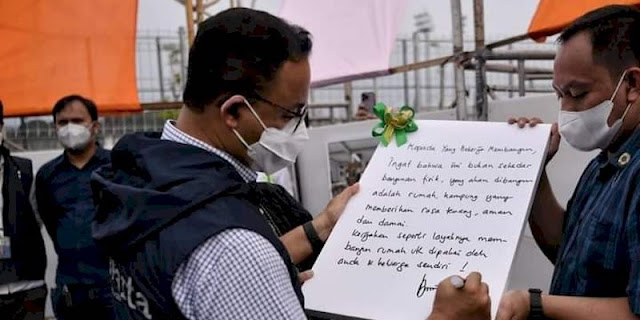 Kepada Yang Bekerja Membangun,
Ingat bahwa ini bukan sekedar
bangunan fisik, yang akan dibangun
adalah rumah kampung yang
memberikan rasa tenang, aman
dan damai.
Kerjakan seperti layaknya mem-
bangun rumah utk dipakai oleh
anak & keluarga sendiri !